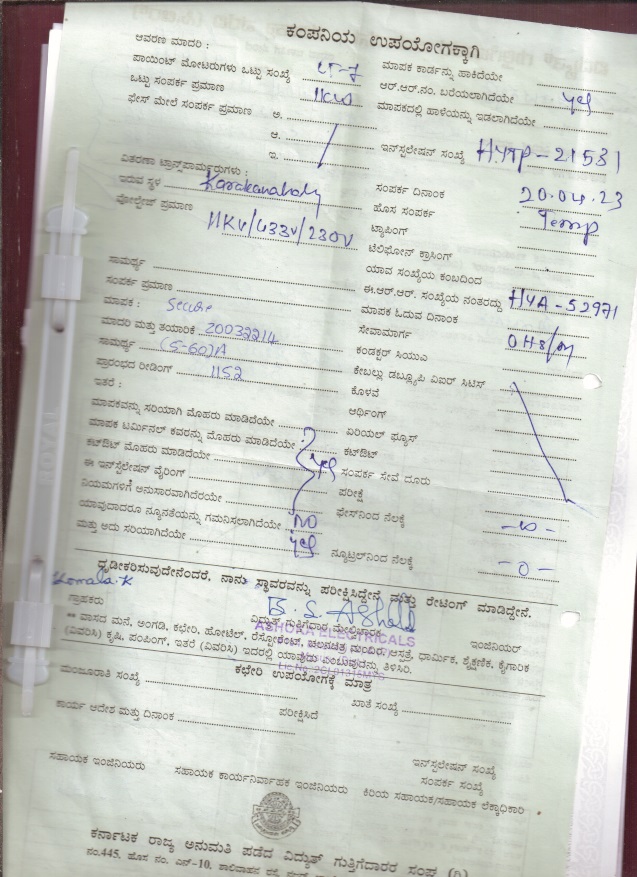 ಕಂಪನಿಯ ಉಪಯೋಗಕ್ಕಾಗಿ
ಆವರಣ ಮಾದರಿ : LT-7
ಪಾಯಿಂಟ್ ಮೋಟರುಗಳು ಒಟ್ಟು ಸಂಖ್ಯೆ
ಒಟ್ಟು ಸಂಪರ್ಕ ಪ್ರಮಾಣ 11KW
ಫೇಸ್ ಮೇಲೆ ಸಂಪರ್ಕ ಪ್ರಮಾಣ ಅ.
ಆ.
ಇ.
ವಿತರಣಾ ಟ್ರಾನ್ಸ್‌ಪಾರ್ಮರುಗಳು :
ಇರುವ ಸ್ಥಳ Karekanahaly
ವೋಲ್ಟೇಜ್ ಪ್ರಮಾಣ 11KV/433V/230V
ಸಾಮರ್ಥ್ಯ
ಸಂಪರ್ಕ ಪ್ರಮಾಣ
ಮಾಪಕ : Secure
ಮಾದರಿ ಮತ್ತು ತಯಾರಿಕೆ 20032214
ಸಾಮರ್ಥ್ಯ (5-60)A
ಪ್ರಾರಂಭದ ರೀಡಿಂಗ್ 1152
ಇತರೆ :
ಮಾಪಕವನ್ನು ಸರಿಯಾಗಿ ಮೊಹರು ಮಾಡಿದೆಯೇ
ಮಾಪಕ ಟರ್ಮಿನಲ್ ಕವರನ್ನು ಮೊಹರು ಮಾಡಿದೆಯೇ
ಕಟ್‌ಔಟ್ ಮೊಹರು ಮಾಡಿದೆಯೇ yes
ಈ ಇನ್‌ಸ್ಟಲೇಷನ್ ವೈರಿಂಗ್
ನಿಯಮಗಳಿಗೆ ಅನುಸಾರವಾಗಿದೆರಯೇ
ಯಾವುದಾದರೂ ನ್ಯೂನತೆಯನ್ನು ಗಮನಿಸಲಾಗಿದೆಯೇ NO
ಮತ್ತು ಅದು ಸರಿಯಾಗಿದೆಯೇ yes
ಮಾಪಕ ಕಾರ್ಡನ್ನು ಹಾಕಿದೆಯೇ
ಆರ್.ಆರ್.ನಂ. ಬರೆಯಲಾಗಿದೆಯೇ yes
ಮಾಪಕದಲ್ಲಿ ಹಾಳೆಯನ್ನು ಇಡಲಾಗಿದೆಯೇ
ಇನ್‌ಸ್ಟಲೇಷನ್ ಸಂಖ್ಯೆ HYTP-21531
ಸಂಪರ್ಕ ದಿನಾಂಕ 20.04.23
ಹೊಸ ಸಂಪರ್ಕ Temp
ಟ್ಯಾಪಿಂಗ್
ಟೆಲಿಫೋನ್ ಕ್ರಾಸಿಂಗ್
ಯಾವ ಸಂಖ್ಯೆಯ ಕಂಬದಿಂದ
ಈ.ಆರ್.ಆರ್. ಸಂಖ್ಯೆಯ ನಂತರದ್ದು HYA-52971
ಮಾಪಕ ಓದುವ ದಿನಾಂಕ
ಸೇವಾಮಾರ್ಗ
ಕಂಡಕ್ಟರ್ ಸಿಯುಎ
ಕೇಬಲ್ಲು ಡಬ್ಲ್ಯೂಪಿ ಏಐರ್ ಸಿಟಿಸ್
ಕೊಳವೆ
ಆರ್ಥಿಂಗ್
ಏರಿಯಲ್ ಫ್ಯೂಸ್
ಕಟ್‌ಔಟ್
ಸಂಪರ್ಕ ಸೇವೆ ದೂರು
ಪರೀಕ್ಷೆ
ಫೇಸ್‌ನಿಂದ ನೆಲಕ್ಕೆ
ನ್ಯೂಟ್ರಲ್‌ನಿಂದ ನೆಲಕ್ಕೆ -0-
ಧೃಡೀಕರಿಸುವುದೇನೆಂದರೆ, ನಾನು ಸ್ಥಾವರವನ್ನು ಪರೀಕ್ಷಿಸಿದ್ದೇನೆ ಮತ್ತು ರೇಟಿಂಗ್ ಮಾಡಿದ್ದೇನೆ.
Komala.K
B.S. Ashok
ಗ್ರಾಹಕರು ವಿದ್ಯುತ್ ಗುತ್ತಿಗೆದಾರ ಮೇಲ್ವಿಚಾರಕ ಇಂಜಿನಿಯರ್
ASHOKA ELECTRICALS
** ವಾಸದ ಮನೆ, ಅಂಗಡಿ, ಕಛೇರಿ, ಹೋಟೆಲ್, ರೆಸ್ಟೋರೆಂಟ್, ಚಲನಚಿತ್ರ ಮಂದಿರ, ಆಸ್ಪತ್ರೆ, ಧಾರ್ಮಿಕ, ಶೈಕ್ಷಣಿಕ, ಕೈಗಾರಿಕ
(ವಿವರಿಸಿ) ಕೃಷಿ, ಪಂಪಿಂಗ್, ಇತರೆ (ವಿವರಿಸಿ) ಇದರಲ್ಲಿ ಯಾವುದು ಎಂಬುವುದನ್ನು ತಿಳಿಸಿರಿ.
ಕಛೇರಿ ಉಪಯೋಗಕ್ಕೆ ಮಾತ್ರ
ಮಂಜೂರಾತಿ ಸಂಖ್ಯೆ ಖಾತೆ ಸಂಖ್ಯೆ
ಕಾರ್ಯ ಆದೇಶ ಮತ್ತು ದಿನಾಂಕ ಪರೀಕ್ಷಿಸಿದೆ
ಇನ್‌ಸ್ಟಲೇಷನ್ ಸಂಖ್ಯೆ
ಸಂಪರ್ಕ ಸಂಖ್ಯೆ
ಸಹಾಯಕ ಇಂಜಿನಿಯರು ಸಹಾಯಕ ಕಾರ್ಯನಿರ್ವಾಹಕ ಇಂಜಿನಿಯರು ಕಿರಿಯ ಸಹಾಯಕ/ಸಹಾಯಕ ಲೆಕ್ಕಾಧಿಕಾರಿ
ಕರ್ನಾಟಕ ರಾಜ್ಯ ಅನುಮತಿ ಪಡೆದ ವಿದ್ಯುತ್ ಗುತ್ತಿಗೆದಾರರ ಸಂಘ (ರಿ)
ನಂ.445, ಹೊಸ ನಂ. ಎನ್-10, ಶಾಲಿವಾಹನ ರಸ್ತೆ